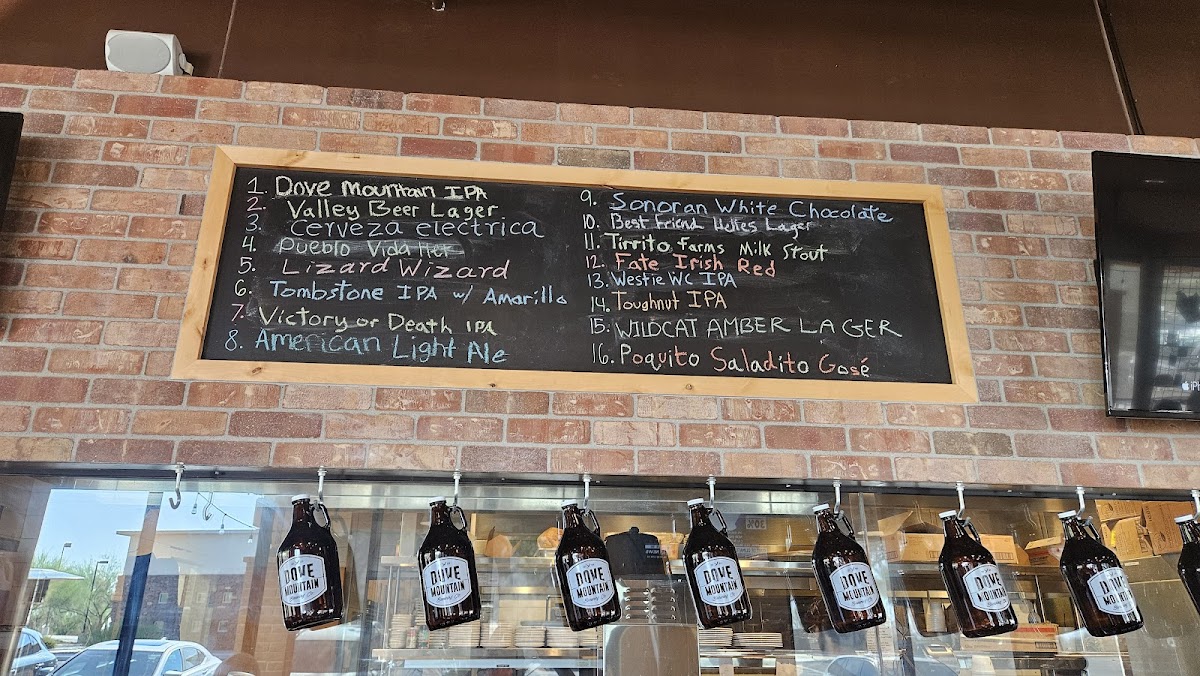 1. Dove Mountain IPA
2. Valley Beer Lager
3. Cerveza electrica
4. Pueblo Vida Hef
5. Lizard Wizard
6. Tombstone IPA w/ Amarillo
7. Victory or Death IPA
8. American Light Ale
9. Sonoran White Chocolate
10. Best Friend Helles Lager
11. Tirrito farms Milk Stout
12. Fate Irish Red
13. Westie WC IPA
14. Toughnut IPA
15. WILDCAT AMBER LAGER
16. Poquito Saladito Gosé
DOVE
MOUNTAIN
DOVE
MOUNTAIN
DOVE
MOUNTAIN
DOVE
MOUNTAIN
DOVE
MOUNTAIN
DOVE
MOUNTAIN
DOVE
MOUNTAIN